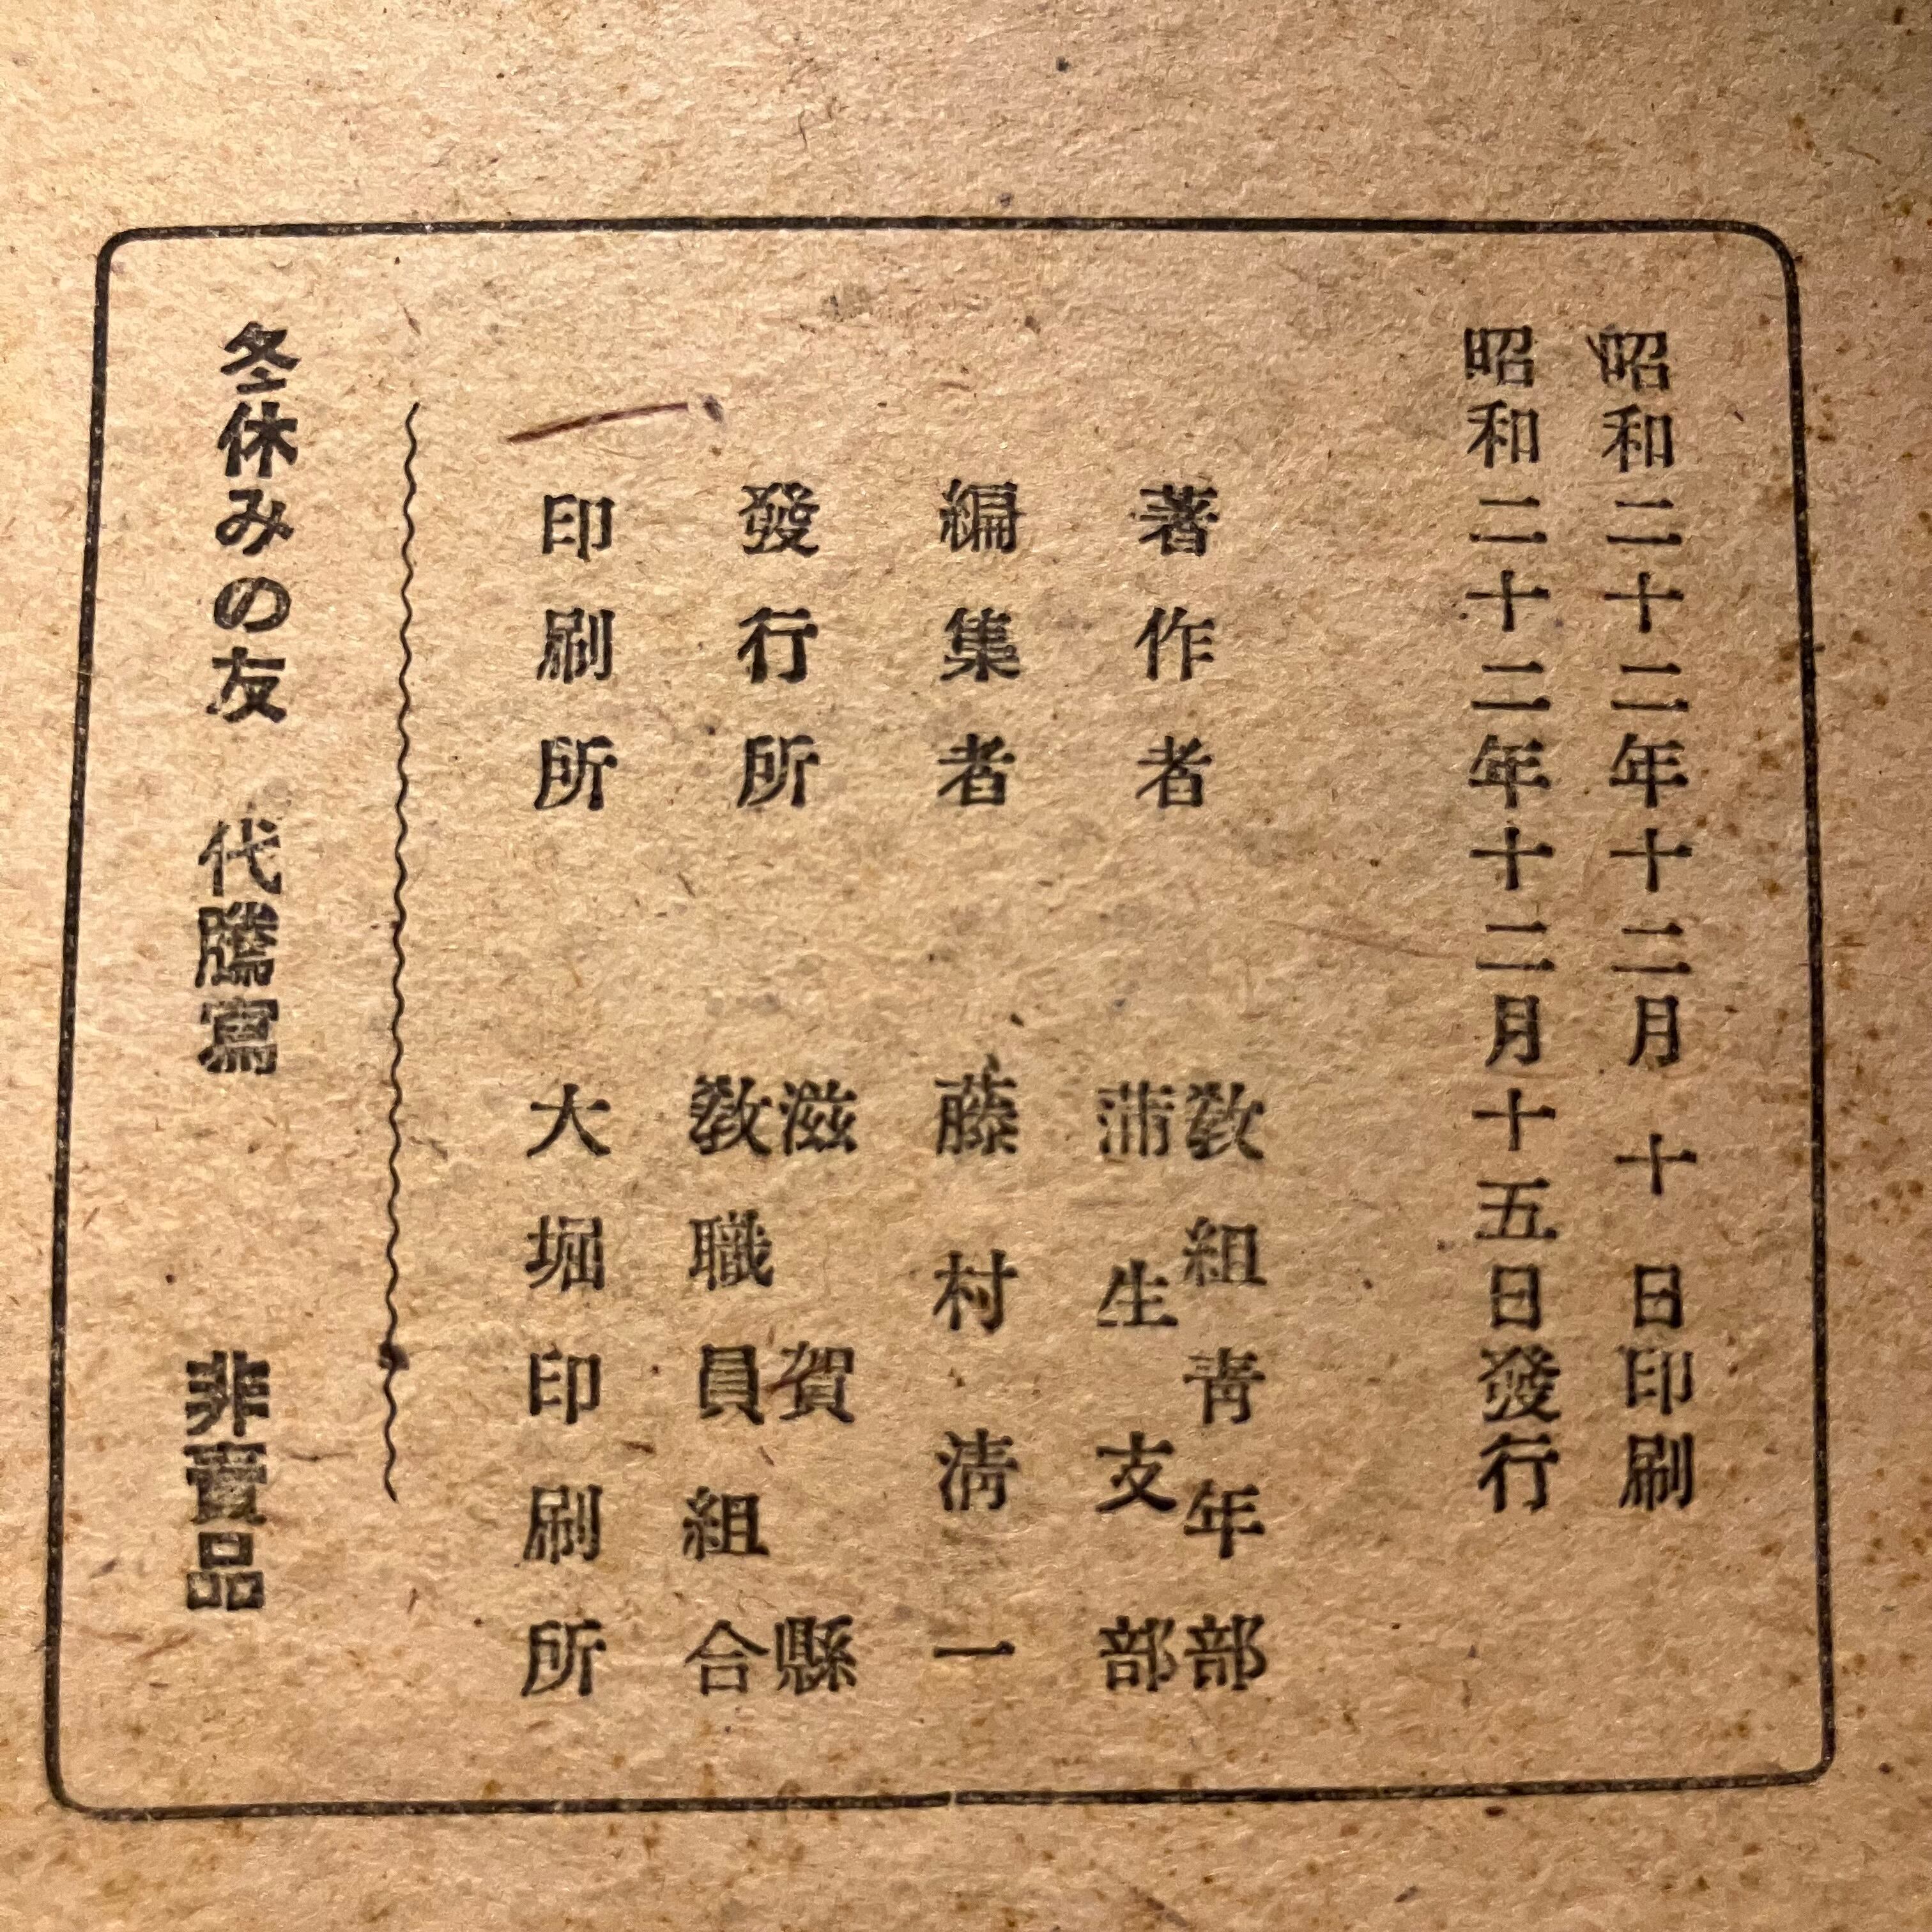 昭和二十二年十二月十日印刷
昭和二十二年十二月十五日發行
著作者 敎組靑年部
蒲生支部
編集者 藤村淸一
發行所 滋賀縣
敎職員組合
印刷所 大堀印刷所
冬休みの友 代謄寫 非賣品